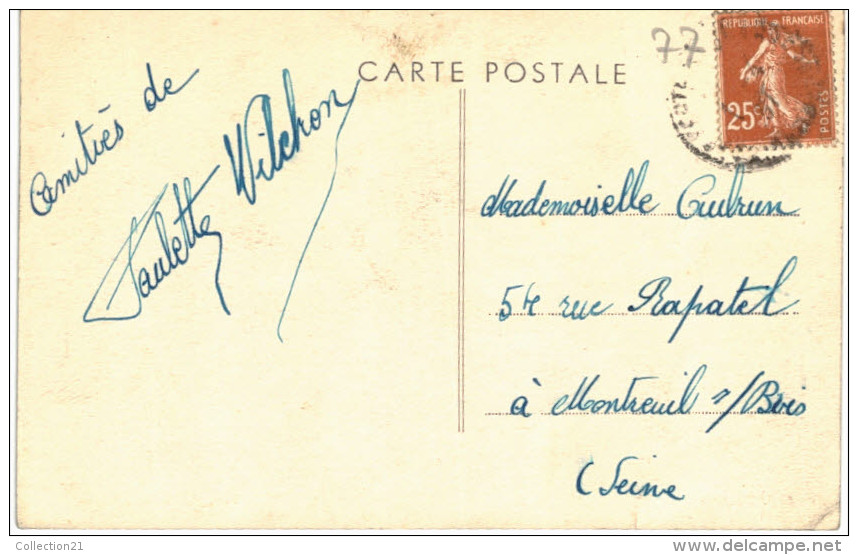 CARTE POSTALE
77
REPUBLIQUE FRANÇAISE
25c
POSTES
Amitiés de
Paulette Wilchon
Mademoiselle
rue Rapatel
à Montreuil s/Bois
(Seine
Collection21
www.delcampe.net